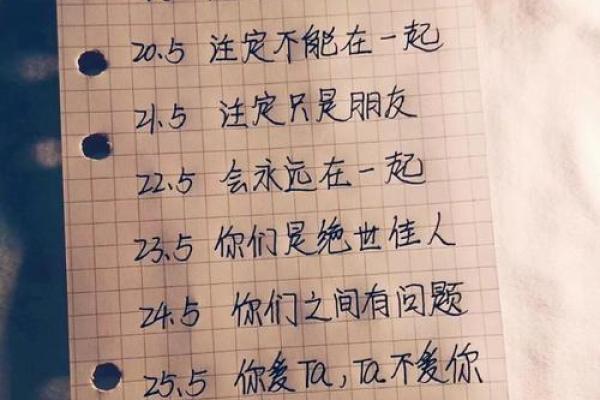 20.5 注定不能在一起
21.5 注定只是朋友
22.5 会永远在一起
23.5 你们是绝世佳人
24.5 你们之间有问题
25.5 你爱Ta,Ta不爱你